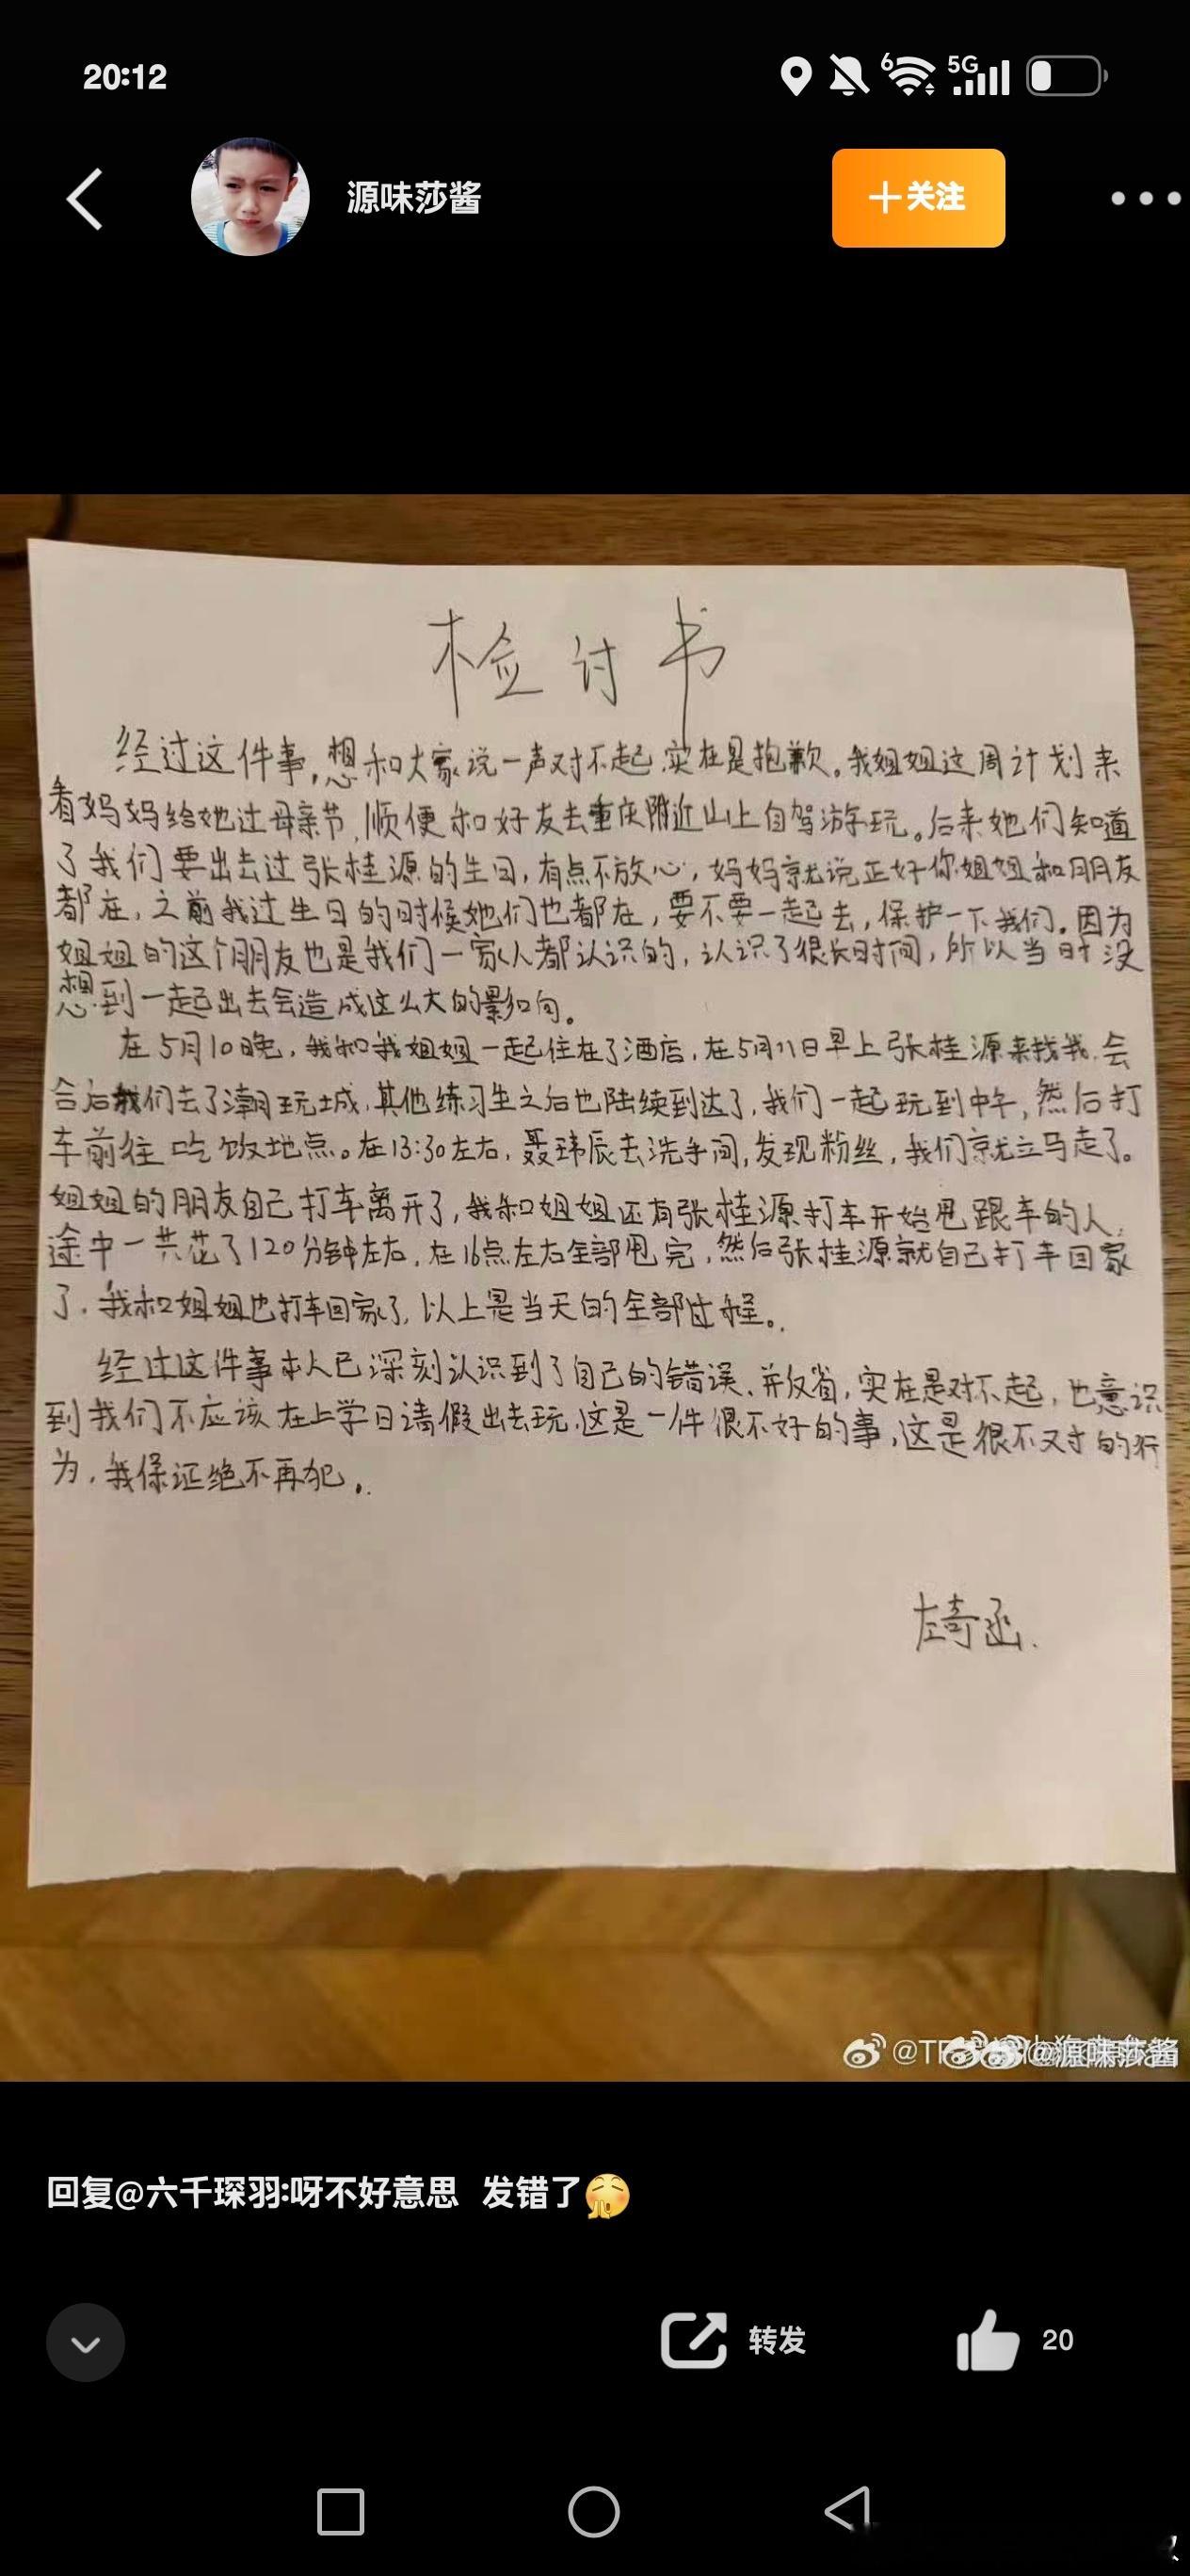 20:12
6
5G
源味莎酱
+关注
检讨书
经过这件事,想和大家说一声对不起,实在是抱歉。我姐姐这周计划来
看妈妈给她过母亲节,顺便和好友去重庆附近山上自驾游玩。后来她们知道
了我们要出去过张桂源的生日,有点不放心,妈妈就说正好你姐姐和朋友
都在,之前我过生日的时候她们也都在,要不要一起去,保护一下我们。因为
姐姐的这个朋友也是我们一家人都认识的,认识了很长时间,所以当时没
想到一起出去会造成这么大的影响。
在5月10晚,我和我姐姐一起住在了酒店,在5月11日早上张桂源来找我,会
合后我们去了潮玩城,其他练习生之后也陆续到达了,我们一起玩到中午,然后打
车前往吃饭地点。在13:30左右,聂玮辰去洗手间,发现粉丝,我们就立马走了。
姐姐的朋友自己打车离开了,我和姐姐还有张桂源打车开始甩跟车的人,
途中一共花了120分钟左右,在16点左右全部甩完,然后张桂源就自己打车回家
了,我和姐姐也打车回家了,以上是当天的全部过程。
经过这件事本人已深刻认识到了自己的错误、并反省,实在是对不起,也意识
到我们不应该在上学日请假出去玩,这是一件很不好的事,这是很不对的行
为,我保证绝不再犯。
左奇函.
@源味莎酱
回复@六千琛羽:呀不好意思 发错了
转发
20